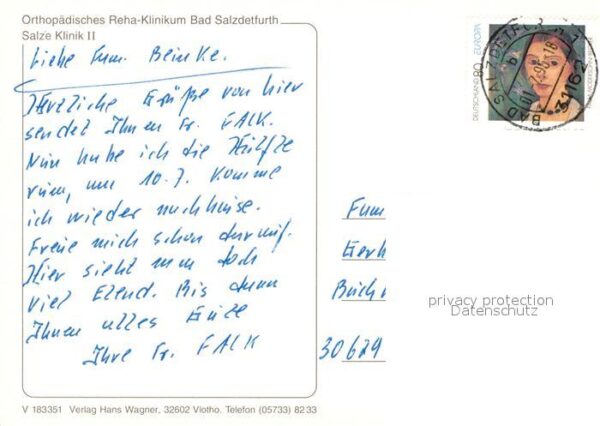 Orthopädisches Reha-Klinikum Bad Salzdetfurth
Salze Klinik II
Liebe Fam. Beinke.
Herzliche Grüße von hier
sendet Ihnen Fr. FALK.
Nun habe ich die Hälfte
rum, am 10.7. komme
ich wieder nachhause.
Freue mich schon darauf.
Hier sieht man doch
viel Elend. Bis dann
Ihnen alles Gute
Ihre Fr. FALK
V 183351 Verlag Hans Wagner, 32602 Vlotho. Telefon (05733) 82 33
DEUTSCHLAND 80 EUROPA
BAD SALZDETFURTH
31162
Fam
Gerh
Buchr
30629
privacy protection
Datenschutz